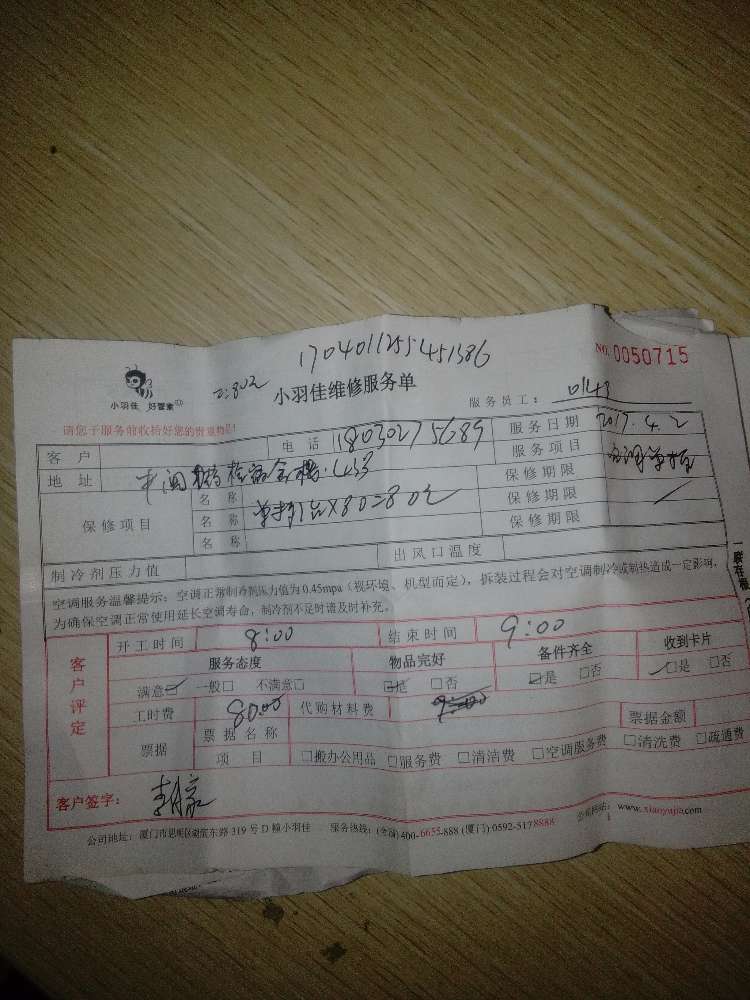 1704011255451386
NO. 0050715
小羽佳 好管家
小羽佳维修服务单
服务员工：
请您于服务前收拾好您的贵重物品！
客户 电话 18030275689 服务日期 2017.4.2
地址 服务项目
保修项目 名称 单挂1台X80=80元 保修期限
名称 保修期限
名称 保修期限
制冷剂压力值 出风口温度
空调服务温馨提示：空调正常制冷剂压力值为0.45mpa（视环境、机型而定），拆装过程会对空调制冷或制热造成一定影响，
为确保空调正常使用延长空调寿命，制冷剂不足时请及时补充。
客户评定
开工时间 8:00 结束时间 9:00
服务态度 物品完好 备件齐全 收到卡片
满意□ 一般□ 不满意□ □是 □否 □是 □否 □是 □否
工时费 80.00 代购材料费
票据 票据名称 票据金额
项目 □搬办公用品 □服务费 □清洁费 □空调服务费 □清洗费 □疏通费
客户签字：
公司地址：厦门市思明区湖滨东路319号D幢小羽佳 服务热线：(全国)400-6655-888 (厦门)0592-5178888 公司网站：www.xiaoyujia.com